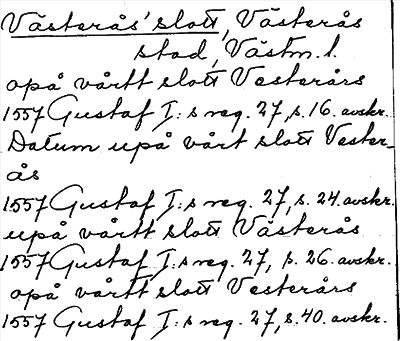 Västerås' slott, Västerås
stad, Västm. l.
opå vårtt slott Vesterårs
1557 Gustaf I:s reg. 27, s. 16. avskr.
Datum upå vårt slott Vester-
ås
1557 Gustaf I:s reg. 27, s. 24. avskr.
upå vårtt slott Västerås
1557 Gustaf I:s reg. 27, s. 26. avskr.
opå vårtt slott Vesterårs
1557 Gustaf I:s reg. 27, s. 40. avskr.